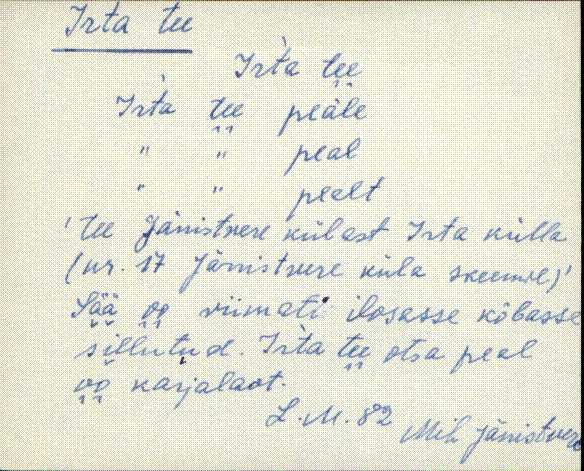 Irta tee
Ir̀ta tee
Ir̀ta tee peäle
" " peal
" " pealt
'tee Jännistvere külast Irta külla
(nr. 17 Jännistvere küla skeemil)'
Sää oo viimati ilosasse kõbasse
sillutud. Ir̀ta tee otsa peal
oo karjalaot.
L.M. 82
MiL Jännistvere